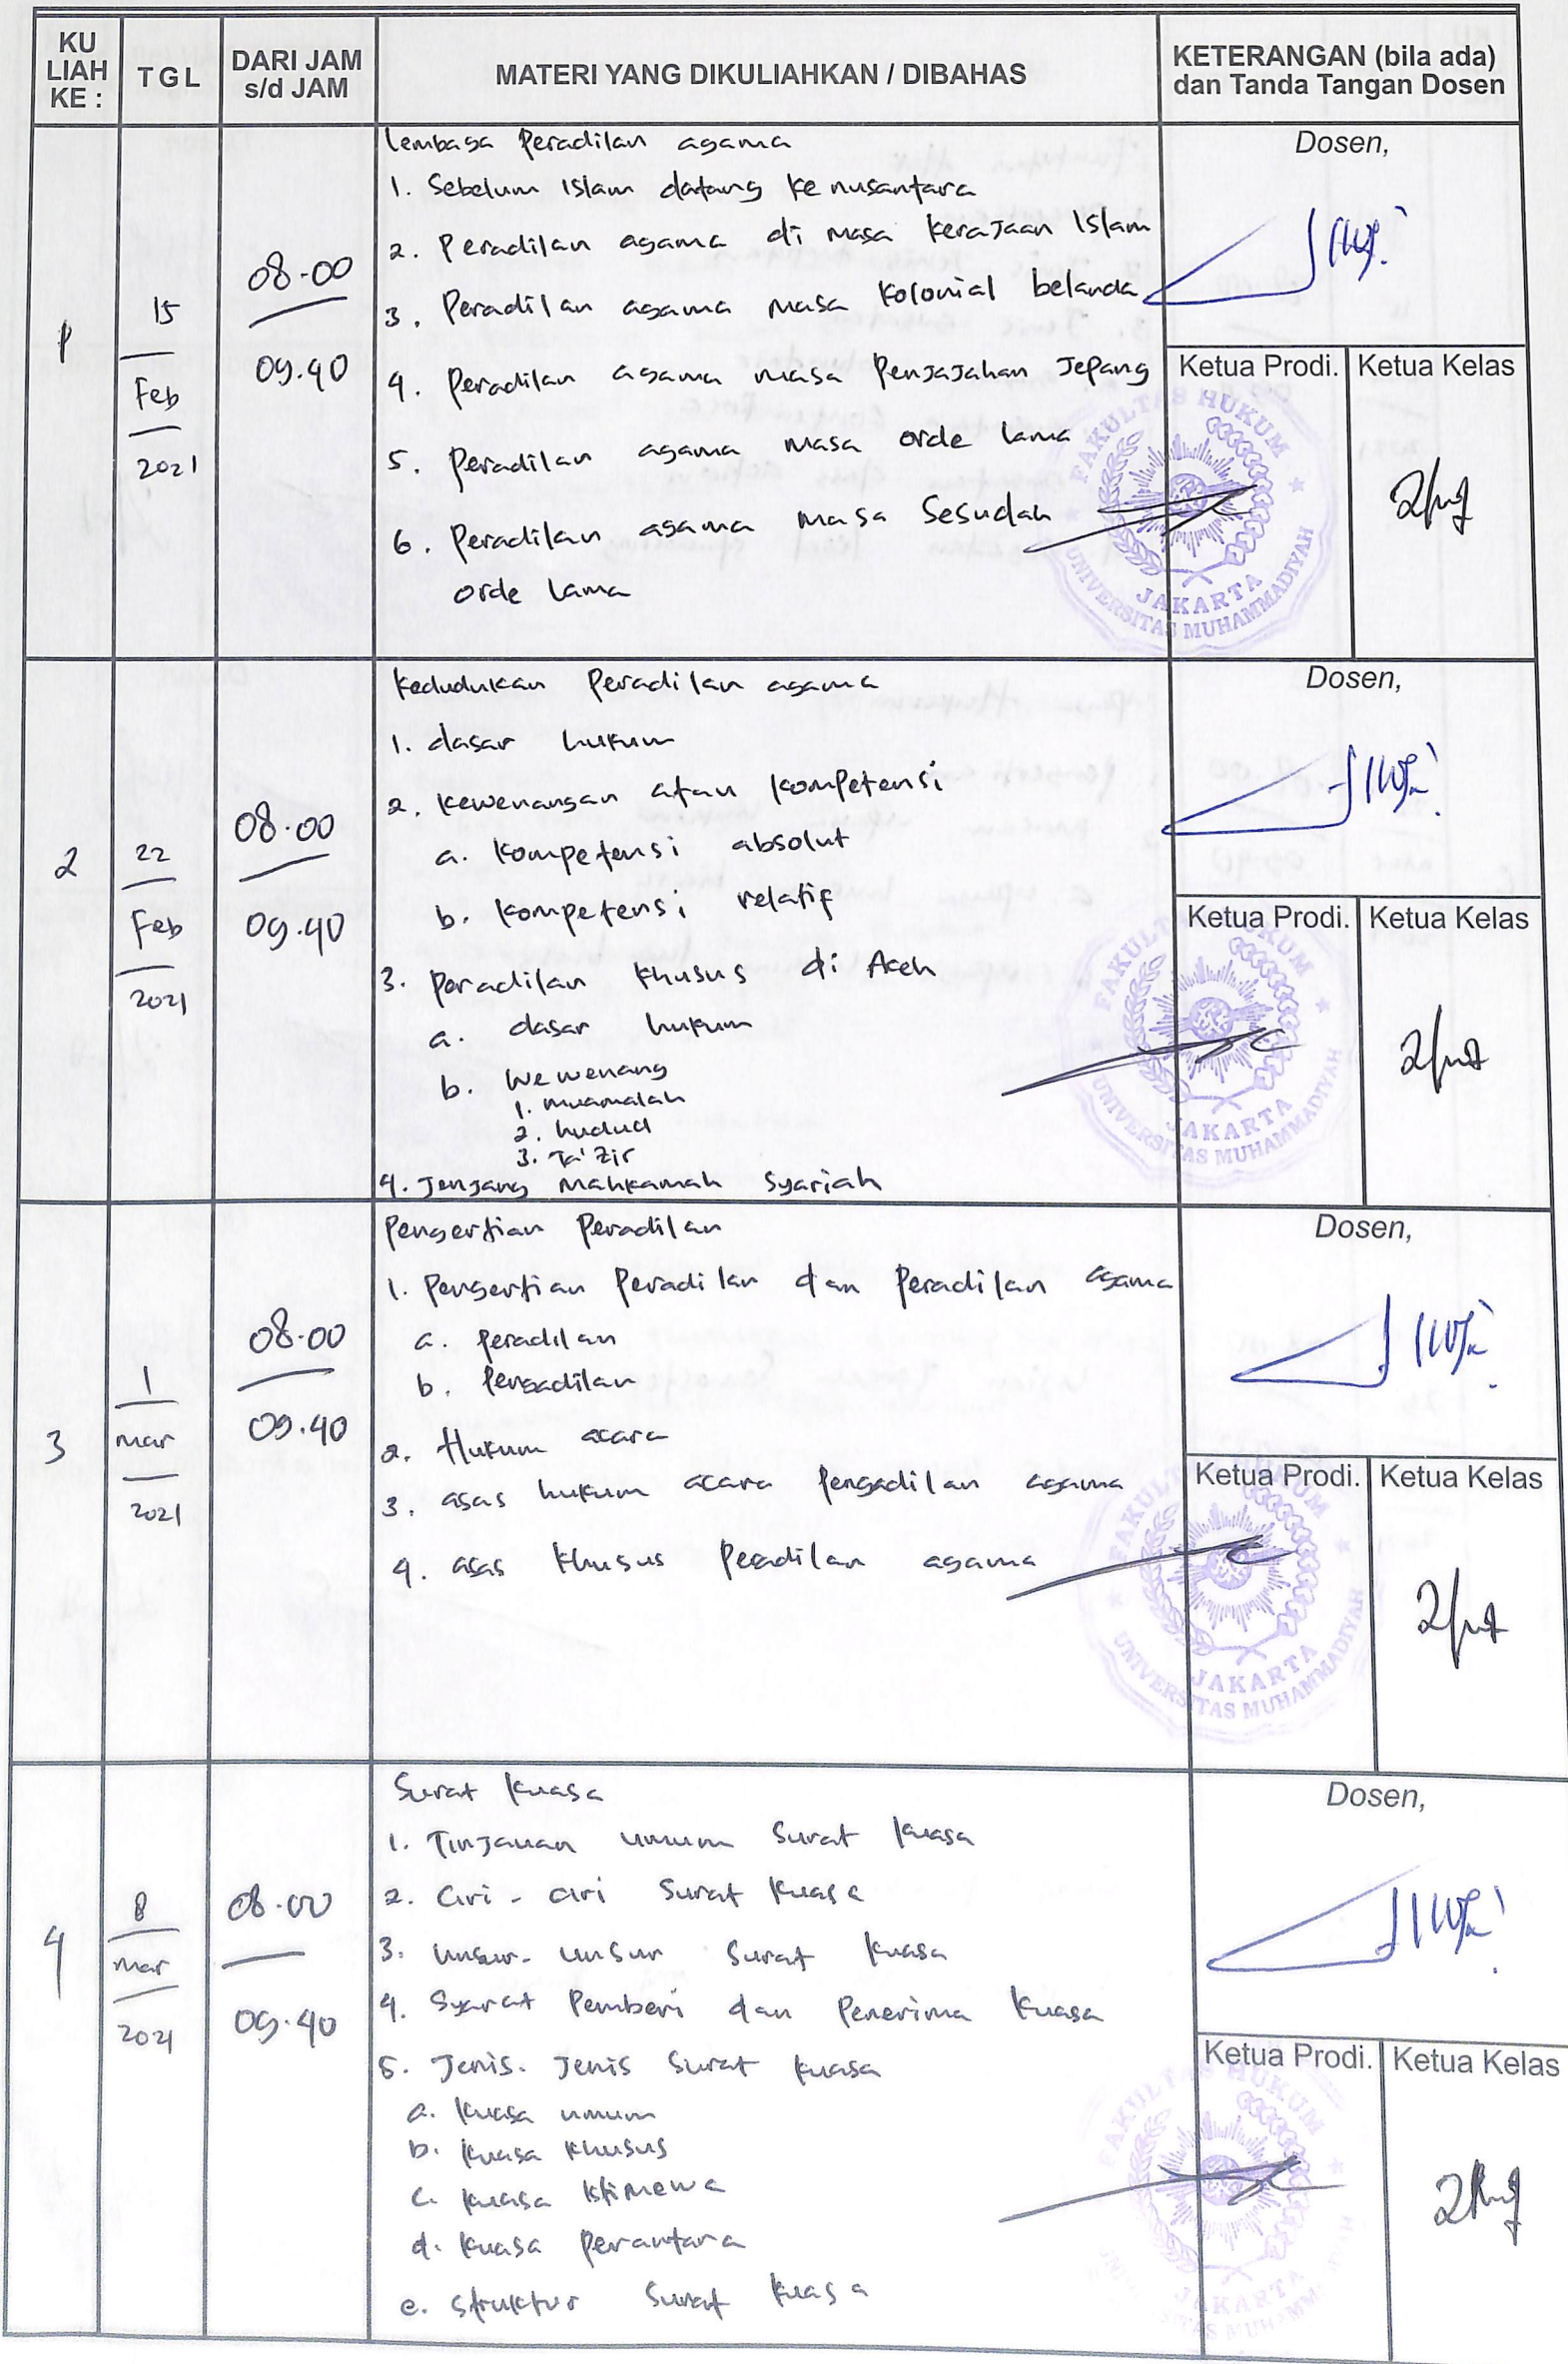 KU
LIAH
KE :
TGL
DARI JAM
s/d JAM
MATERI YANG DIKULIAHKAN / DIBAHAS
KETERANGAN (bila ada)
dan Tanda Tangan Dosen
1
15
Feb
2021
08.00
09.40
Lembaga Peradilan agama
1. Sebelum Islam datang ke nusantara
2. Peradilan agama di masa kerajaan Islam
3. Peradilan agama masa kolonial belanda
4. Peradilan agama masa Penjajahan Jepang
5. Peradilan agama masa orde lama
6. Peradilan agama masa Sesudah
orde lama
Dosen,
Ketua Prodi.
Ketua Kelas
FAKULTAS HUKUM
JAKARTA
UNIVERSITAS MUHAMMADIYAH
2
22
Feb
2021
08.00
09.40
Kedudukan Peradilan agama
1. dasar hukum
2. kewenangan atau kompetensi
a. kompetensi absolut
b. kompetensi relatif
3. Peradilan khusus di Aceh
a. dasar hukum
b. Wewenang
1. muamalah
2. hudud
3. Ta'zir
4. Jenjang Mahkamah Syariah
Dosen,
Ketua Prodi.
Ketua Kelas
FAKULTAS HUKUM
JAKARTA
UNIVERSITAS MUHAMMADIYAH
3
1
Mar
2021
08.00
09.40
Pengertian Peradilan
1. Pengertian Peradilan dan Peradilan agama
a. Peradilan
b. Pengadilan
2. Hukum acara
3. asas hukum acara Pengadilan agama
4. asas khusus Peradilan agama
Dosen,
Ketua Prodi.
Ketua Kelas
FAKULTAS HUKUM
JAKARTA
UNIVERSITAS MUHAMMADIYAH
4
8
Mar
2021
08.00
09.40
Surat kuasa
1. Tinjauan umum Surat kuasa
2. Ciri - ciri Surat kuasa
3. unsur - unsur Surat kuasa
4. Syarat Pemberi dan Penerima Kuasa
5. Jenis - Jenis Surat kuasa
a. kuasa umum
b. kuasa khusus
c. kuasa istimewa
d. kuasa Perantara
e. Struktur Surat kuasa
Dosen,
Ketua Prodi.
Ketua Kelas
FAKULTAS HUKUM
JAKARTA